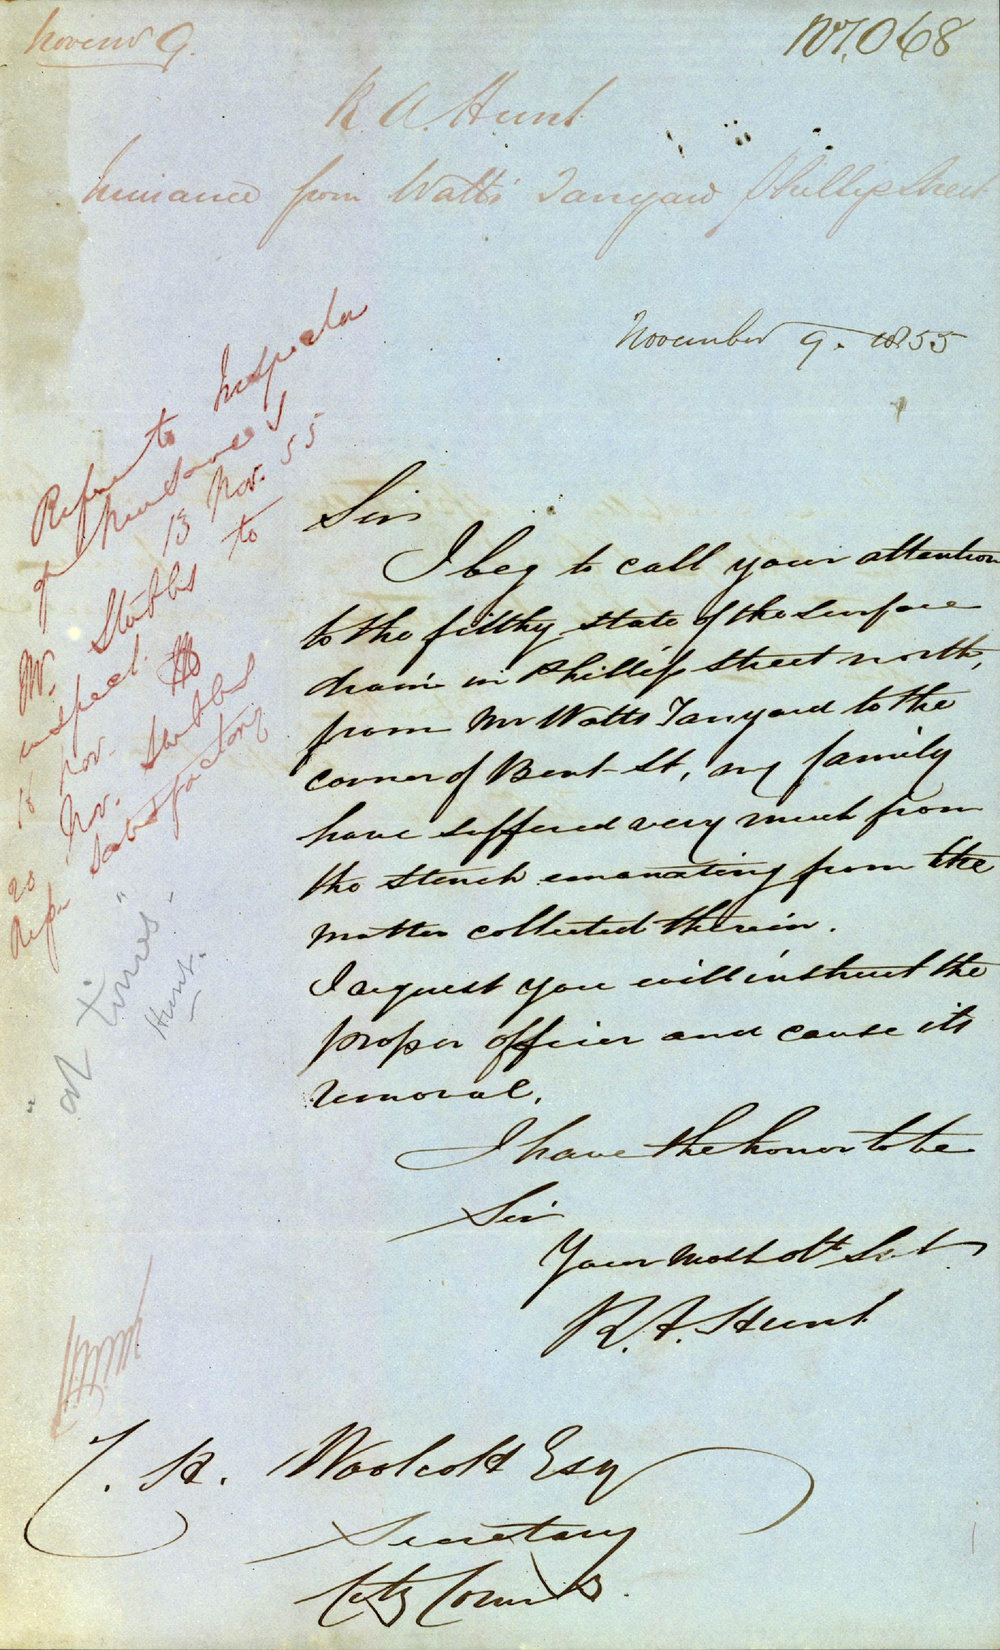 Novemr 9.
No 1,068
R A. Hunt
Nuisance from Watts' Tanyard Phillip Street
November 9. 1855
Refer to Inspector
of Nuisances
13 Nov. 55
Mr. Stubbs to
inspect.
18 Nov.
20 Nov. Stubbs
Satisfactory
"at times"
Hunt.
Sir
I beg to call your attention
to the filthy state of the surface
drain in Phillip Street north,
from Mr Watts Tanyard to the
corner of Bent-St, my family
have suffered very much from
the stench emanating from the
matter collected therein.
I request you will instruct the
proper officer and cause its
removal.
I have the honor to be
Sir
Your most obt Sevt
R. A. Hunt
J. H. Woolcott Esq
Secretary
City Comrs.